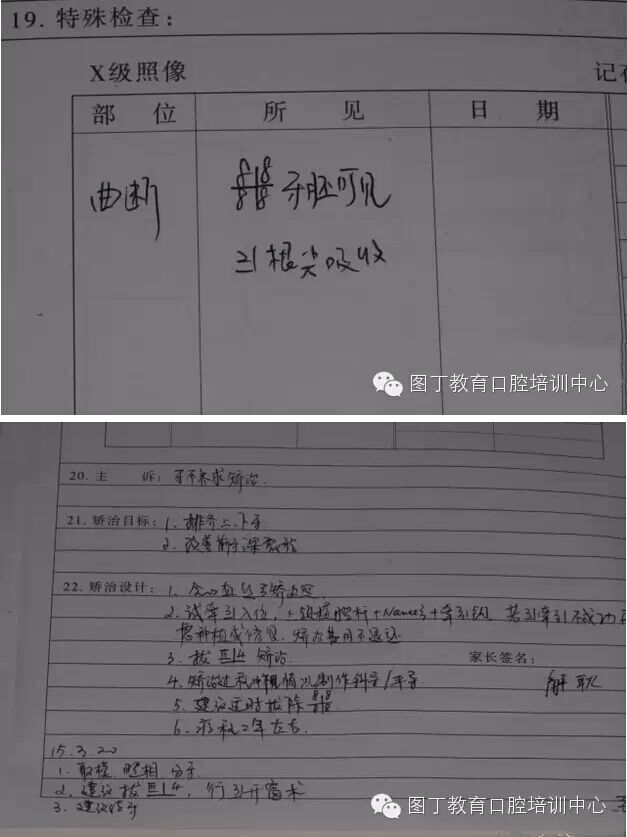 19. 特殊检查：
X级照像
部 位 所 见 日 期
曲断 8 8 牙胚可见
8 8
根尖吸收
图丁教育口腔培训中心
20. 主 诉：牙不齐求矫治.
21. 矫治目标：1. 排齐上.下牙
2. 改善前牙深覆
22. 矫治设计：1.
2. 试牵引入位, 横腭杆+Nance弓+牵引钩, 若 牵引不成功
需种植或修复, 矫治费用不退还
3. 拔 4 矫治. 家长签名：
4. 矫治过程中视情况制作斜导/平导
5. 建议适时拔除 8 8
8 8
6. 疗程2年左右.
15.3.20
1. 取模. 照相.
2. 建议拔 4, 行 开窗术
3. 建议
图丁教育口腔培训中心